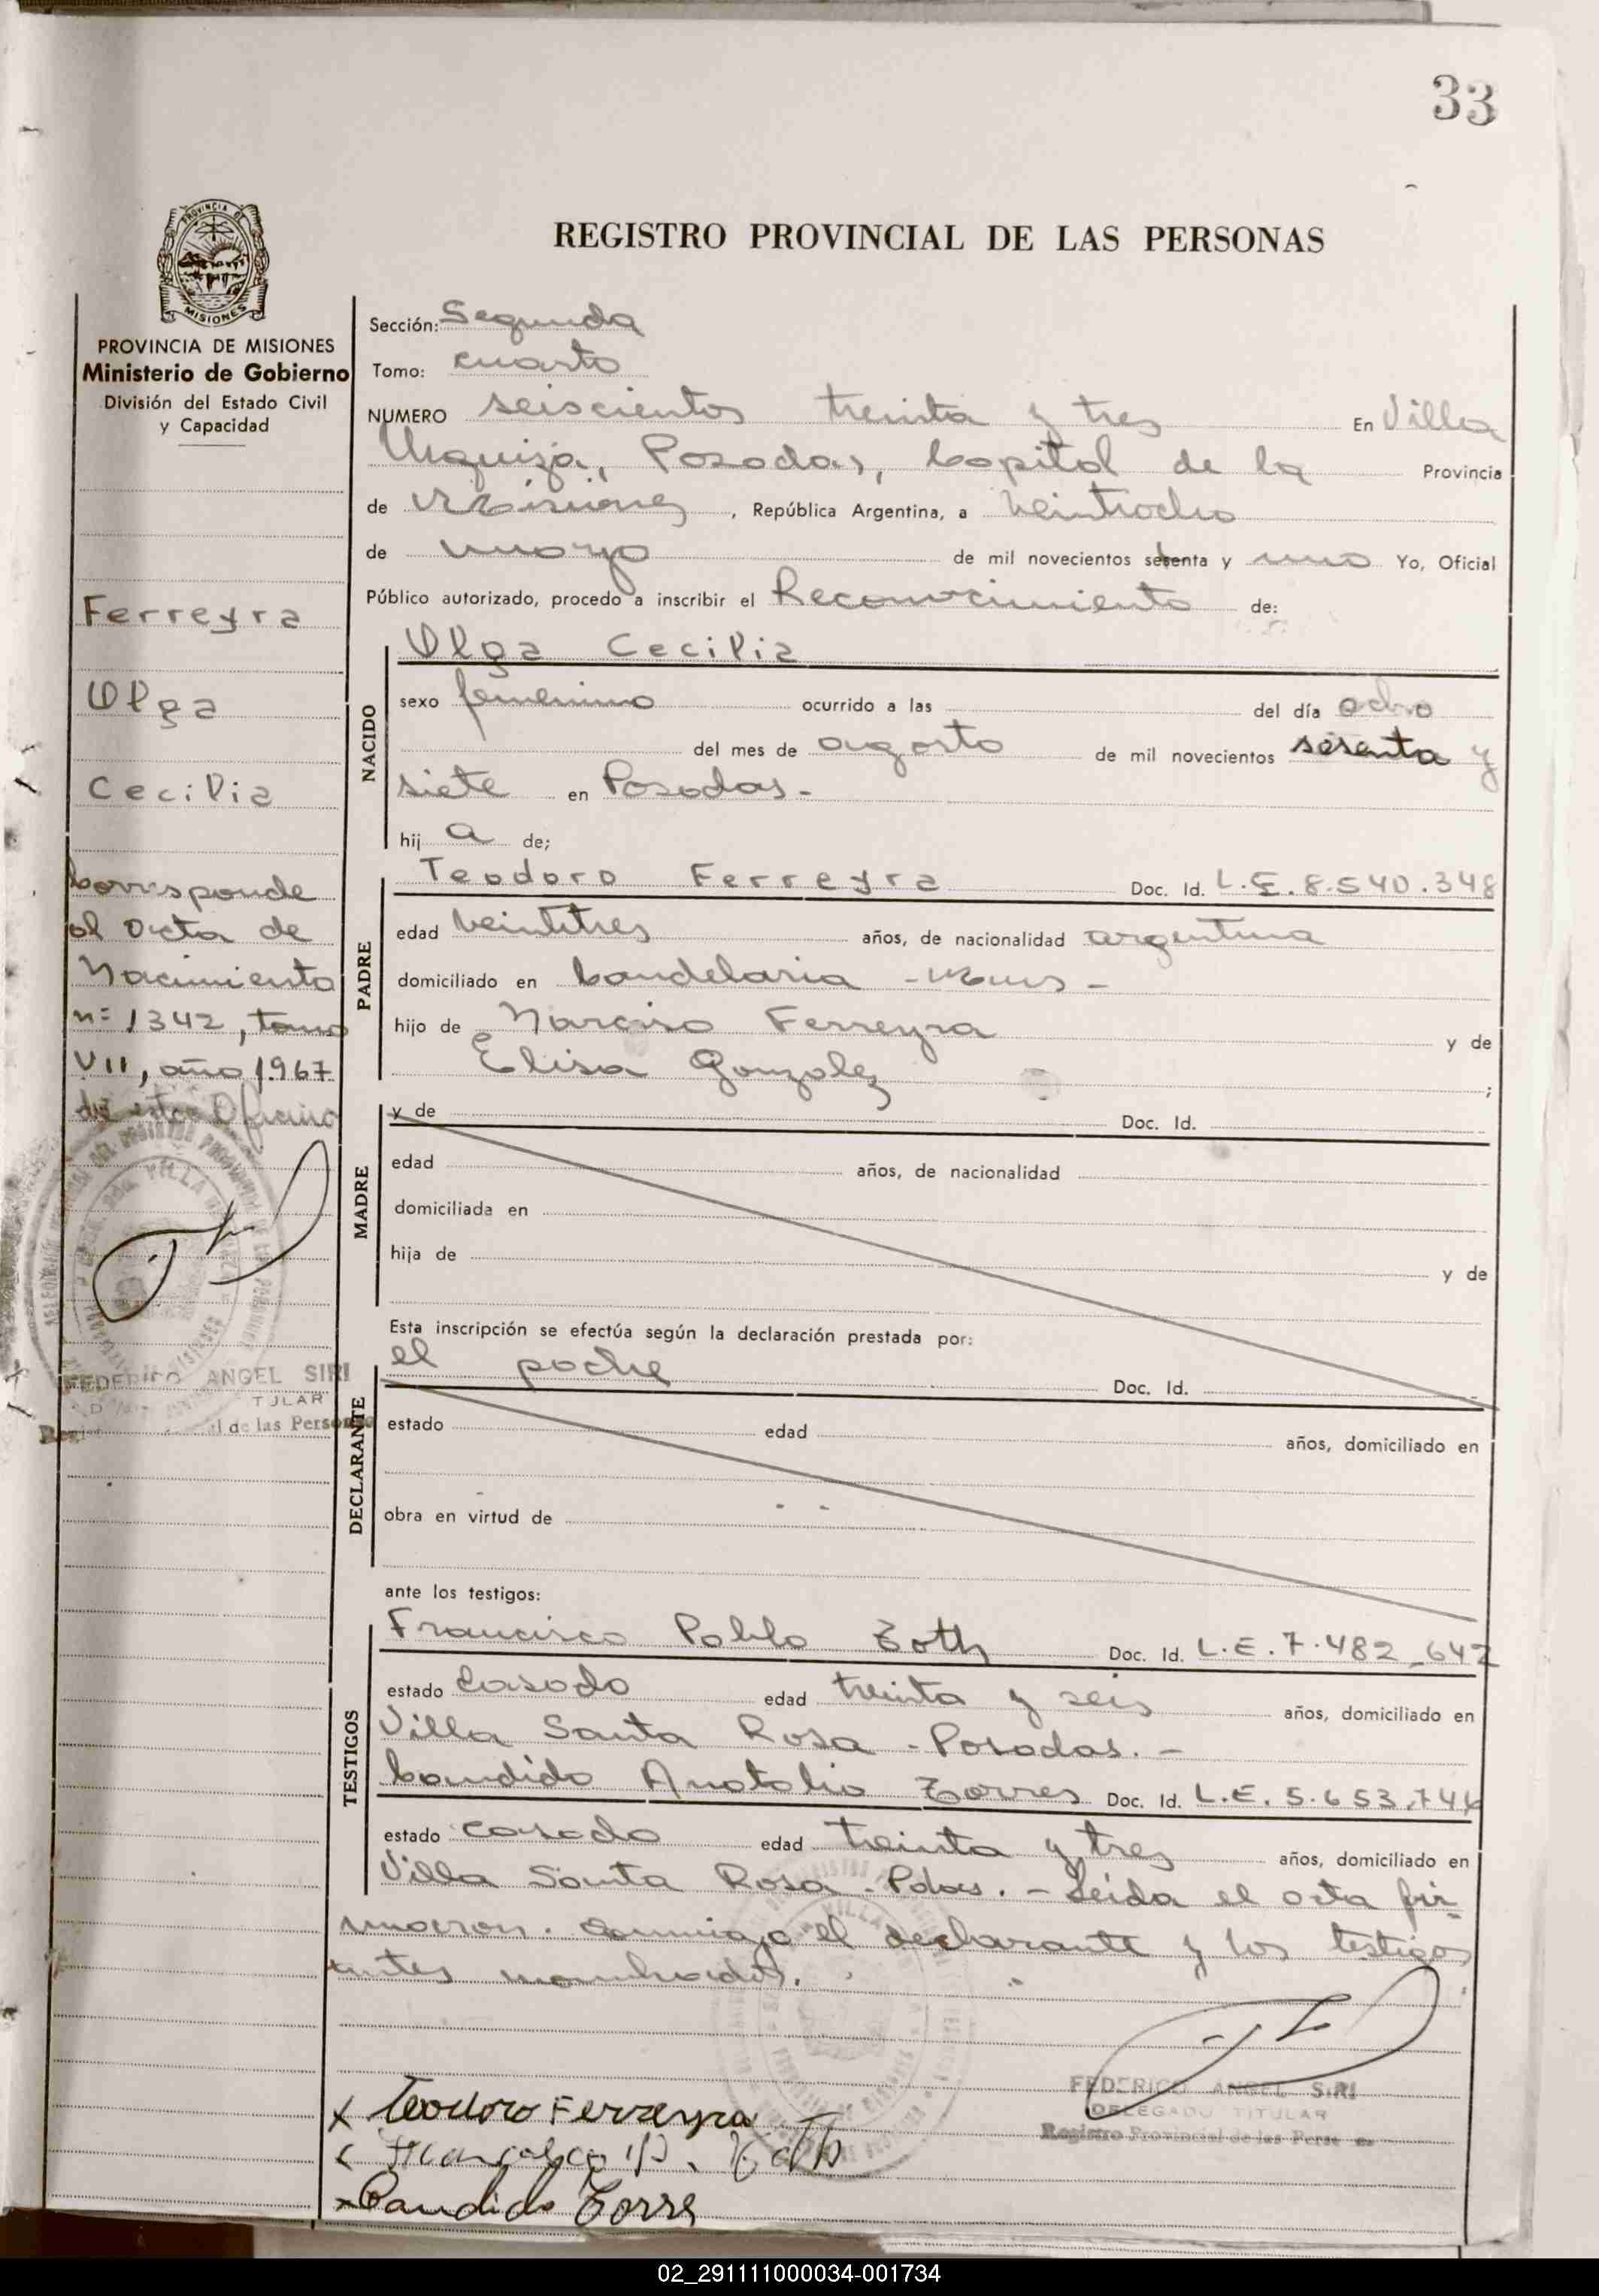 33
PROVINCIA DE
MISIONES
REGISTRO PROVINCIAL DE LAS PERSONAS
PROVINCIA DE MISIONES
Ministerio de Gobierno
División del Estado Civil
y Capacidad
Ferreyra
Olga
Cecilia
Corresponde
al Acta de
Nacimiento
nº 1342, tomo
VII, año 1967
de esta Oficina
FEDERICO ANGEL SIRI
TULAR
al de las Personas
Sección: Segunda
Tomo: cuarto
NUMERO seiscientos treinta y tres En Villa
Urquiza, Posadas, Capital de la Provincia
de Misiones, República Argentina, a veintiocho
de marzo de mil novecientos setenta y uno Yo, Oficial
Público autorizado, procedo a inscribir el Reconocimiento de:
NACIDO
Olga Cecilia
sexo femenino ocurrido a las del día ocho
del mes de agosto de mil novecientos sesenta y
siete en Posadas-
hij a de;
PADRE
Teodoro Ferreyra Doc. Id. L.E. 8.540.348
edad veintitres años, de nacionalidad argentina
domiciliado en Candelaria - Mnes -
hijo de Narciso Ferreyra y de
Elisa Gonzalez ;
MADRE
y de Doc. Id.
edad años, de nacionalidad
domiciliada en
hija de y de
Esta inscripción se efectúa según la declaración prestada por:
DECLARANTE
el padre Doc. Id.
estado edad años, domiciliado en
obra en virtud de
ante los testigos:
TESTIGOS
Francisco Pablo Zoth Doc. Id. L.E. 7.482.642
estado casado edad treinta y seis años, domiciliado en
Villa Santa Rosa - Posadas. -
Candido Anatolio Torres Doc. Id. L.E. 5.653.746
estado casado edad treinta y tres años, domiciliado en
Villa Santa Rosa - Pdas. - Leida el acta fir-
maron conmigo el declarante y los testigos
antes nombrados.
FEDERICO ANGEL SIRI
DELEGADO TITULAR
Registro Provincial de las Personas
x Teodoro Ferreyra
x Francisco P. Zoth
x Candido Torre
02_291111000034-001734